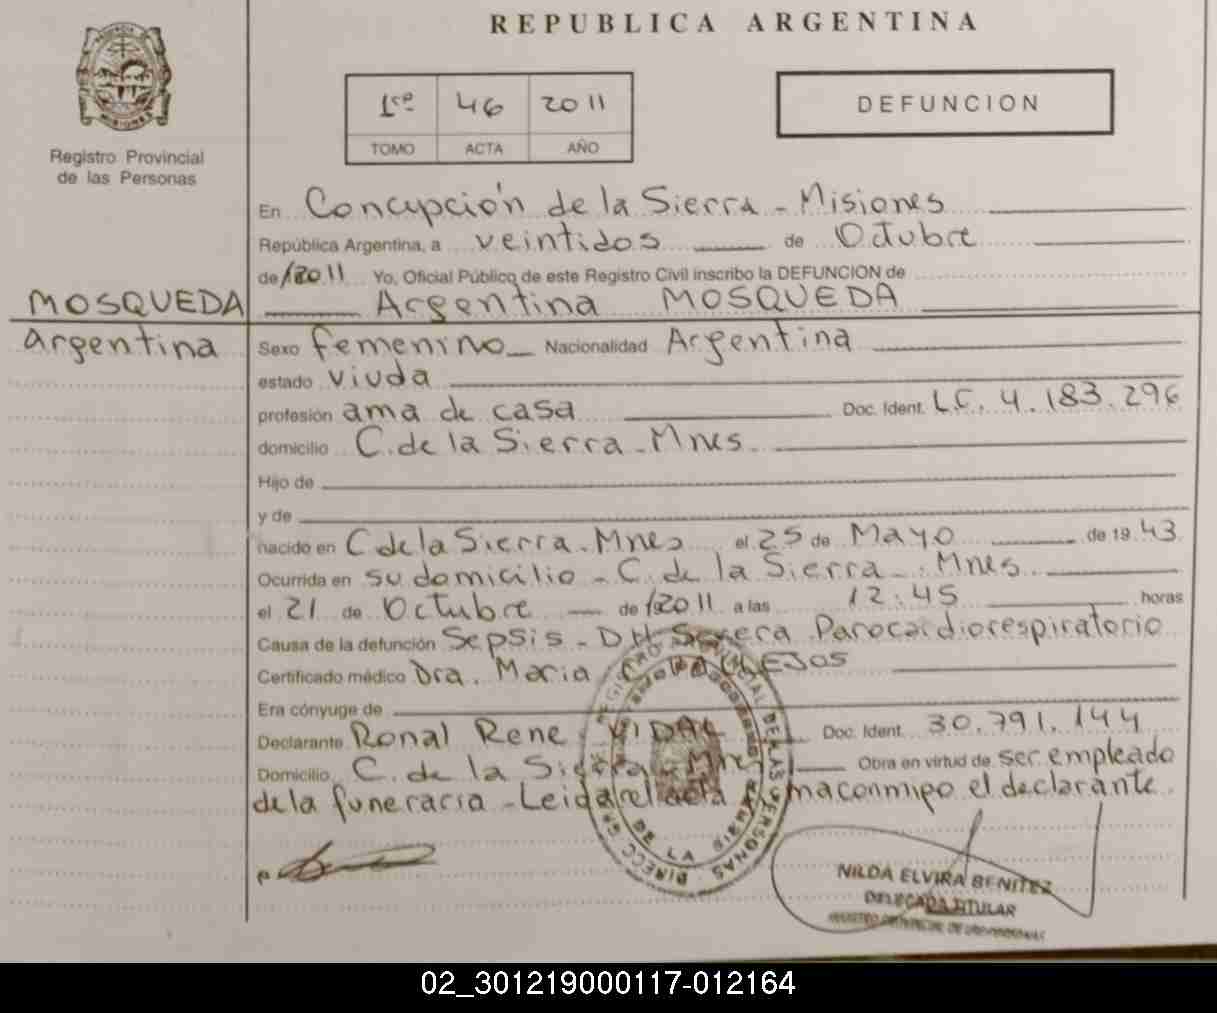 REPUBLICA ARGENTINA
PROVINCIA DE MISIONES
Registro Provincial
de las Personas
1re 46 2011
TOMO ACTA AÑO
DEFUNCION
En Concepción de la Sierra - Misiones
República Argentina, a veintidos de Octubre
de 2011 Yo, Oficial Público de este Registro Civil inscribo la DEFUNCION de
MOSQUEDA Argentina MOSQUEDA
Argentina Sexo femenino Nacionalidad Argentina
estado viuda
profesión ama de casa Doc. Ident. L.C. 4.183.296
domicilio C. de la Sierra - Mnes
Hijo de
y de
nacido en C de la Sierra - Mnes el 25 de Mayo de 1943
Ocurrida en su domicilio - C. de la Sierra - Mnes
el 21 de Octubre de 2011 a las 12:45 horas
Causa de la defunción Sepsis - DH Severa Parocardiorespiratorio
Certificado médico Dra. Maria
Era cónyuge de
Declarante Ronal Rene VIDAL Doc. Ident. 30.791.144
Domicilio C. de la Sierra - Mnes Obra en virtud de ser empleado
de la funeraria - Leida el acta firma conmigo el declarante.
NILDA ELVIRA BENITEZ
DELEGADA TITULAR
REGISTRO PROVINCIAL DE LAS PERSONAS
02_301219000117-012164